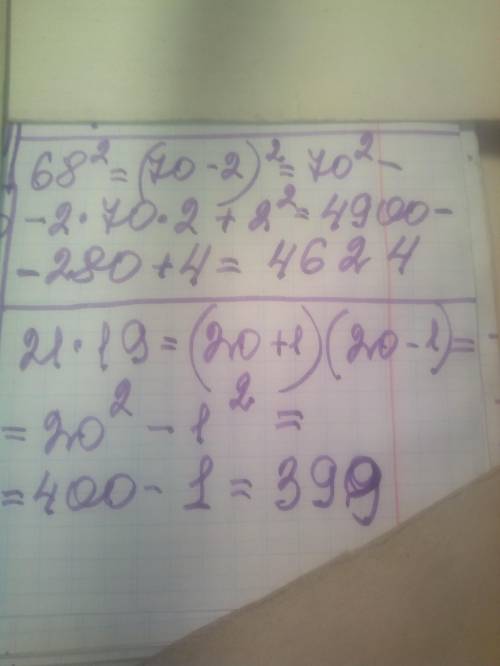 68² = (70 - 2)² = 70² -
- 2 · 70 · 2 + 2² = 4900 -
- 280 + 4 = 4624
21 · 19 = (20 + 1)(20 - 1) =
= 20² - 1² =
= 400 - 1 = 399